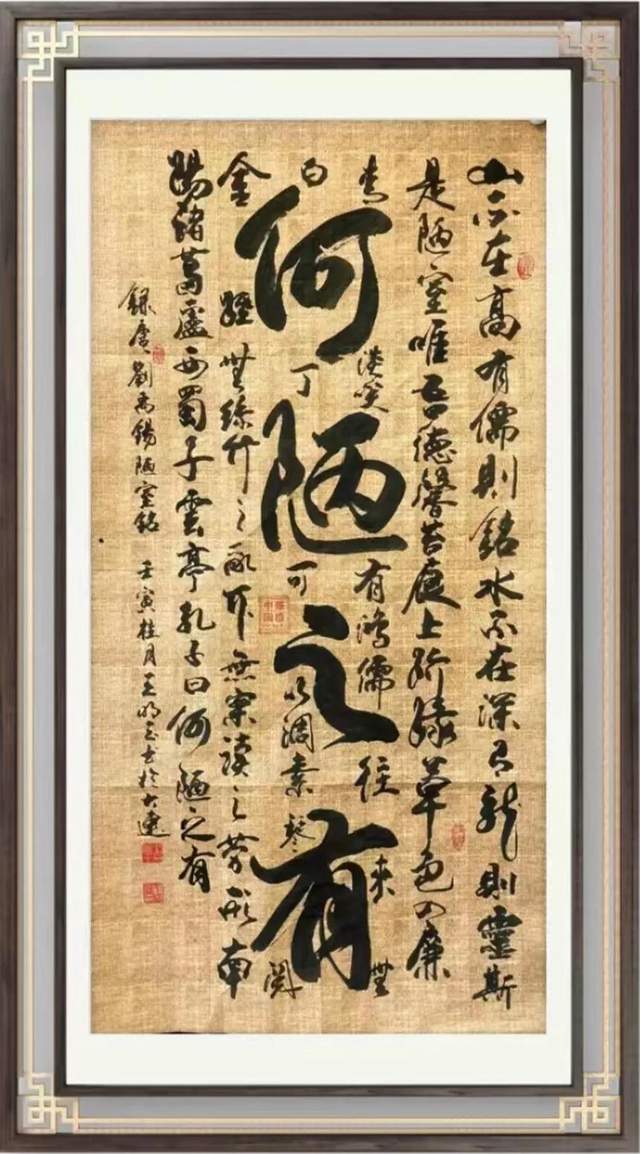 山不在高有儒則銘水不在深有龍則靈斯
是陋室唯吾德馨苔痕上階緑草色入廉
青淡笑有鴻儒往來無
何陋之有
白丁可以調素琴閱
金經無絲竹之亂耳無案讀之勞形南
陽諸葛盧西蜀子雲亭孔子曰何陋之有
録唐劉禹錫陋室銘 壬寅桂月王明書於大連